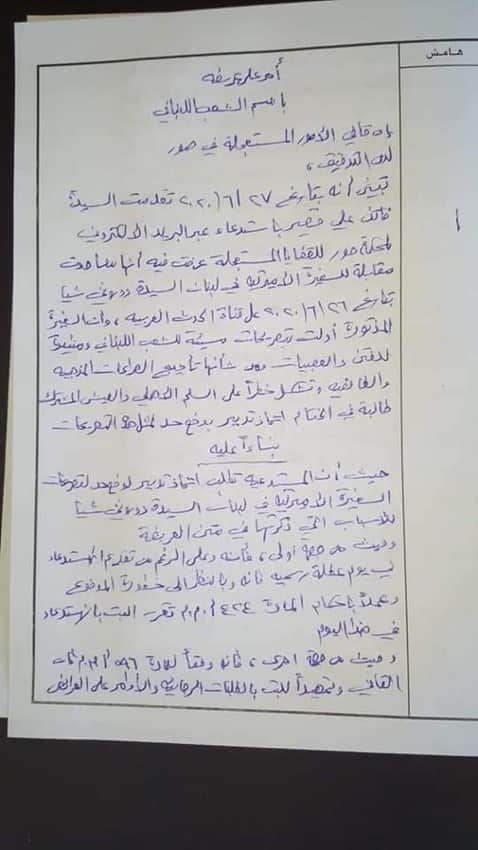 هامش
أمر على عريضة
باسم الشعب اللبناني
إن قاضي الأمور المستعجلة في صور
لدى التدقيق،
تبين أنه بتاريخ ٢٠٢٠/٦/٢٧ تقدمت السيدة
فاتن علي قصير باستدعاء عبر البريد الالكتروني
لمحكمة صور للقضايا المستعجلة عرضت فيه أنها شاهدت
مقابلة للسفيرة الأميركية في لبنان السيدة دوروثي شيا
بتاريخ ٢٠٢٠/٦/٢٦ على قناة الحدث العربية، وأن السفيرة
المذكورة أدلت بتصريحات مسيئة للشعب اللبناني ومثيرة
للفتن والعصبيات ومن شأنها تأجيج الصراعات المذهبية
والطائفية وتشكل خطراً على السلم الأهلي والعيش المشترك
طالبة في الختام اتخاذ تدبير بوضع حد لمثل هذه التصريحات
بناءً عليه
حيث أن المستدعية تطلب اتخاذ تدبير لوضع حد لتصريحات
السفيرة الأميركية في لبنان السيدة دوروثي شيا
للأسباب التي ذكرتها في متن العريضة
وحيث من جهة أولى، فأنه وعلى الرغم من تقديم الاستدعاء
في يوم عطلة رسمية فأنه وبالنظر الى خطورة الموضوع
وعملاً باحكام المادة ٤٢٤ أ.م.م تقرر البت بالاستدعاء
في هذا اليوم
وحيث من جهة اخرى، فأنه وفقاً للمادة ٥٩٦ أ.م.م فأن
القاضي وتمهيداً للبت بالطلبات الرجائية والأوامر على العرائض
أ